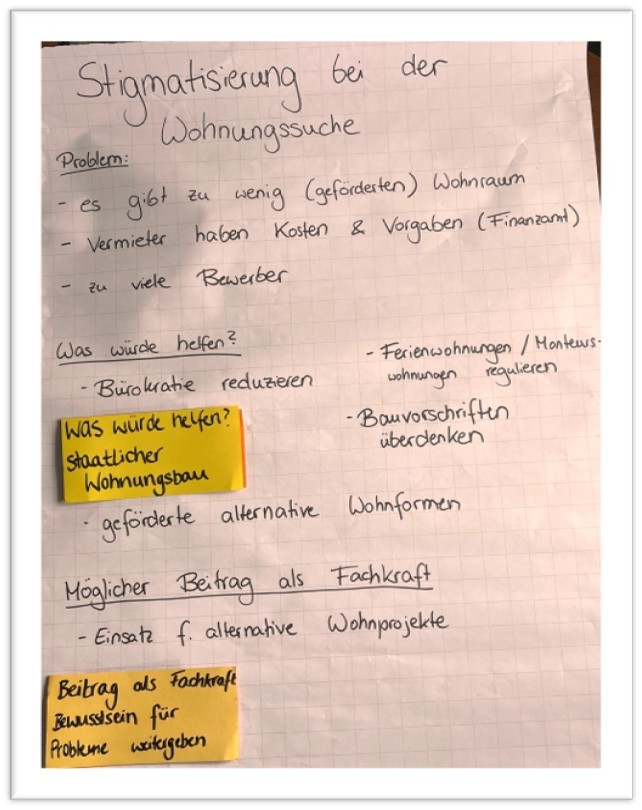 Stigmatisierung bei der
Wohnungssuche
Problem:
- es gibt zu wenig (geförderten) Wohnraum
- Vermieter haben Kosten & Vorgaben (Finanzamt)
- zu viele Bewerber
Was würde helfen?
- Bürokratie reduzieren
- Ferienwohnungen / Monteurs-
wohnungen regulieren
- Bauvorschriften
überdenken
Was würde helfen?
staatlicher
Wohnungsbau
- geförderte alternative Wohnformen
Möglicher Beitrag als Fachkraft
- Einsatz f. alternative Wohnprojekte
Beitrag als Fachkraft
Bewusstsein für
Probleme weitergeben